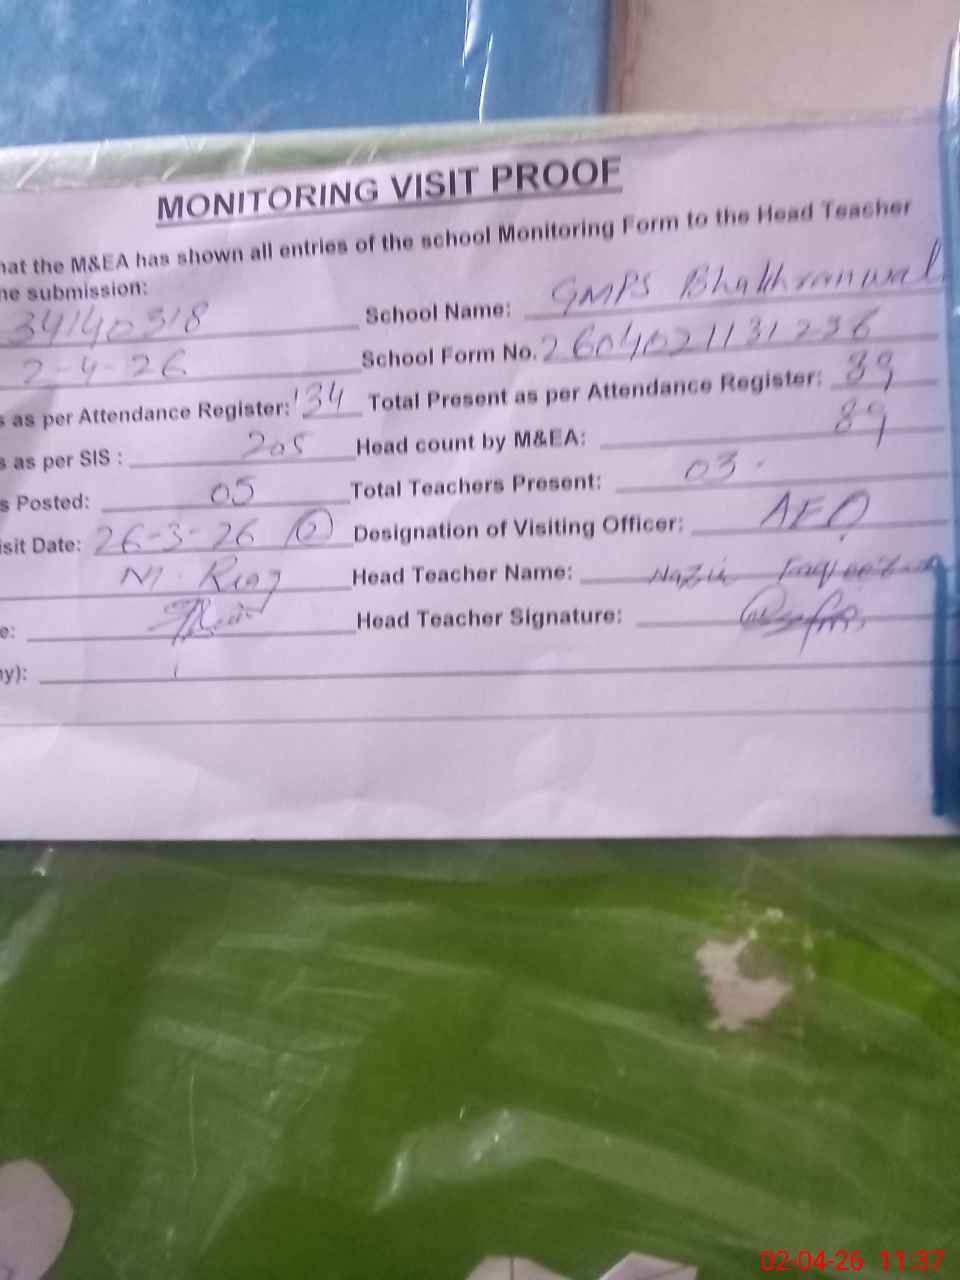 MONITORING VISIT PROOF
hat the M&EA has shown all entries of the school Monitoring Form to the Head Teacher
he submission:
34140318 School Name: GMPS
2-4-26 School Form No. 2604021131236
s as per Attendance Register: 134 Total Present as per Attendance Register: 89
s as per SIS : 205 Head count by M&EA: 89
s Posted: 05 Total Teachers Present: 03
isit Date: 26-3-26 (2) Designation of Visiting Officer: AEO
M. Riaz Head Teacher Name:
e: Head Teacher Signature:
ny):
02-04-26 11:37